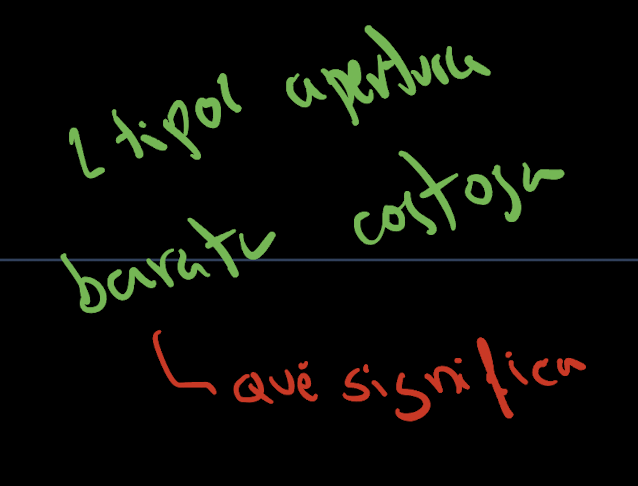 tipos apertura
barata costosa
qué significa